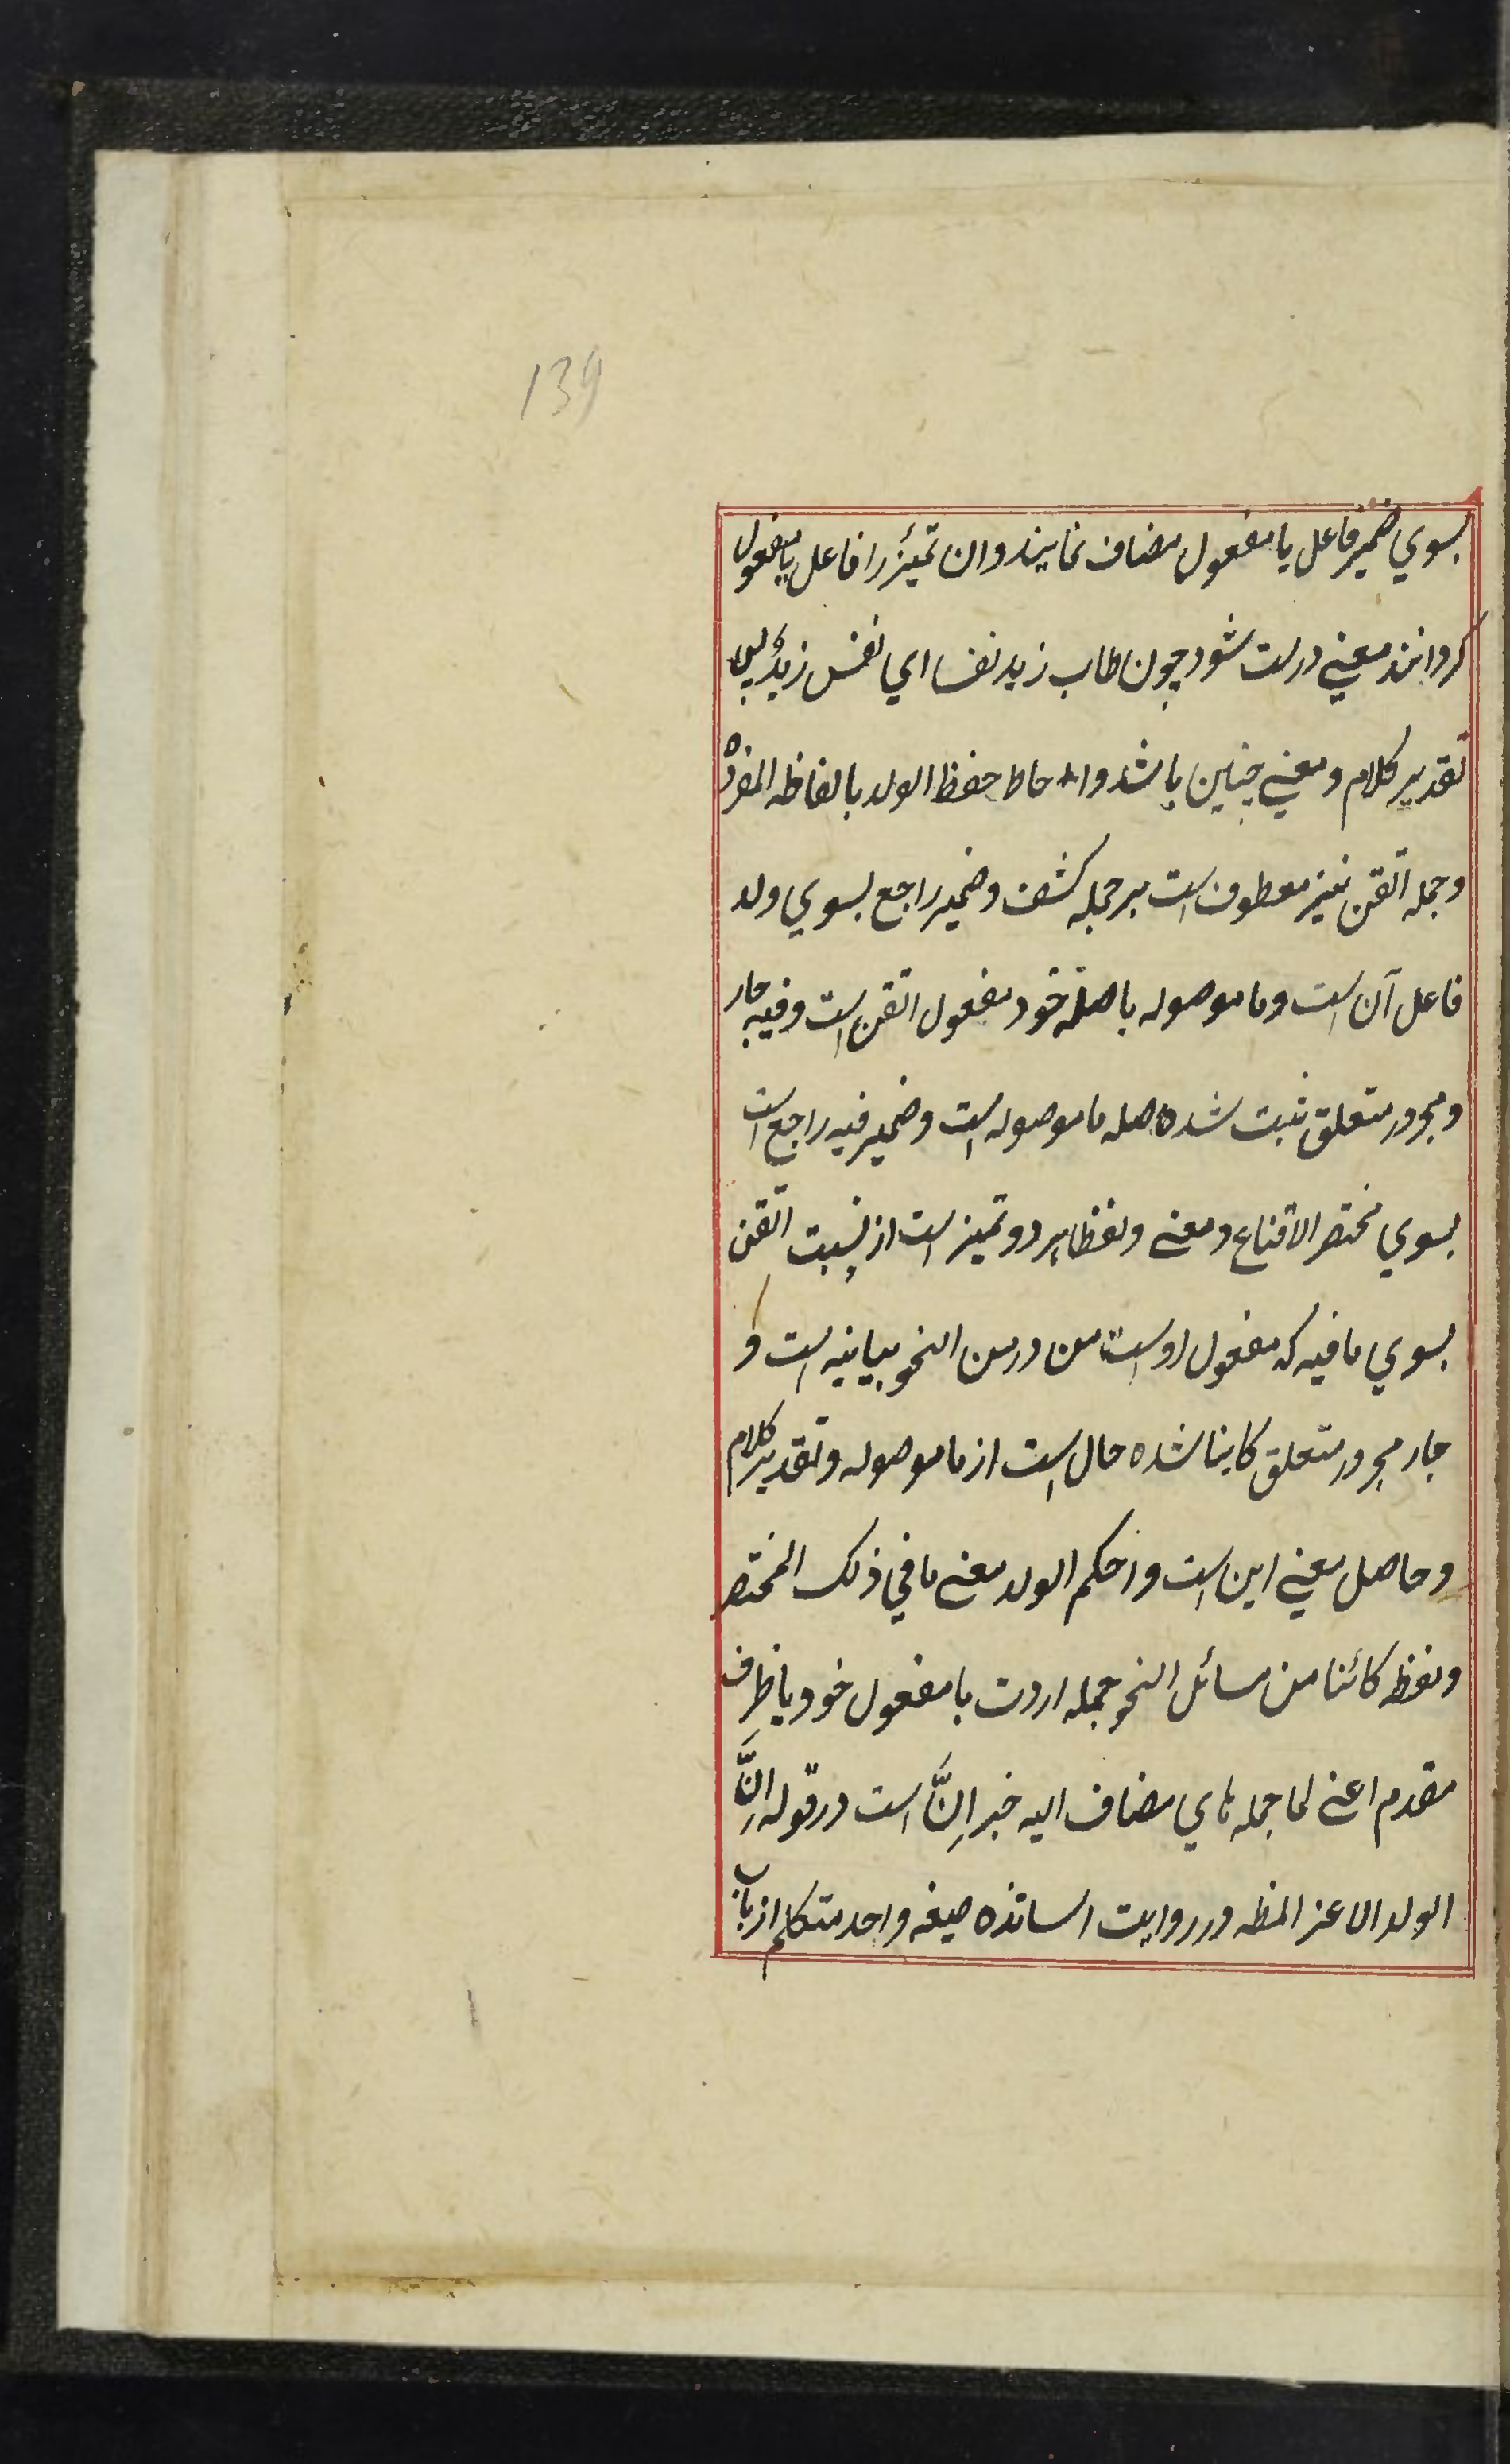 139
بسوي ضمير فاعل يا مفعول مضاف نمايند وان تميز را فاعل يا مفعول
كردانند معني درست شود چون طاب زيد نفسا اي نفس زيد پس
تقدير كلام و معني چنين باشد واحاط حفظ الولد بالفاظه المفرده
وجمله اتقن نيز معطوف است بر جمله كشف وضمير راجع بسوي ولد
فاعل آن است وما موصوله باصله خود مفعول اتقن است وفيه جار
ومجرور متعلق ثبت شده صله ما موصوله است وضمير فيه راجع است
بسوي مختصر الاقناع ومعنى ولفظا هر دو تميز است از نسبت اتقن
بسوي ما فيه كه مفعول اوست من در من النحو بيانيه است و
جار مجرور متعلق كاينا شده حال است از ما موصوله وتقدير كلام
وحاصل معني اين است واحكم الولد معنى ما في ذلك المختصر
ولفظه كائنا من مسائل النحو جمله اردت با مفعول خود يا ظرف
مقدم اعنى لما جمله ماي مضاف اليه خبر اِنَّ است در قوله اِنَّ
الولد الاعز الخ در روايت اساتذه صيغه واحد متكلم از باب